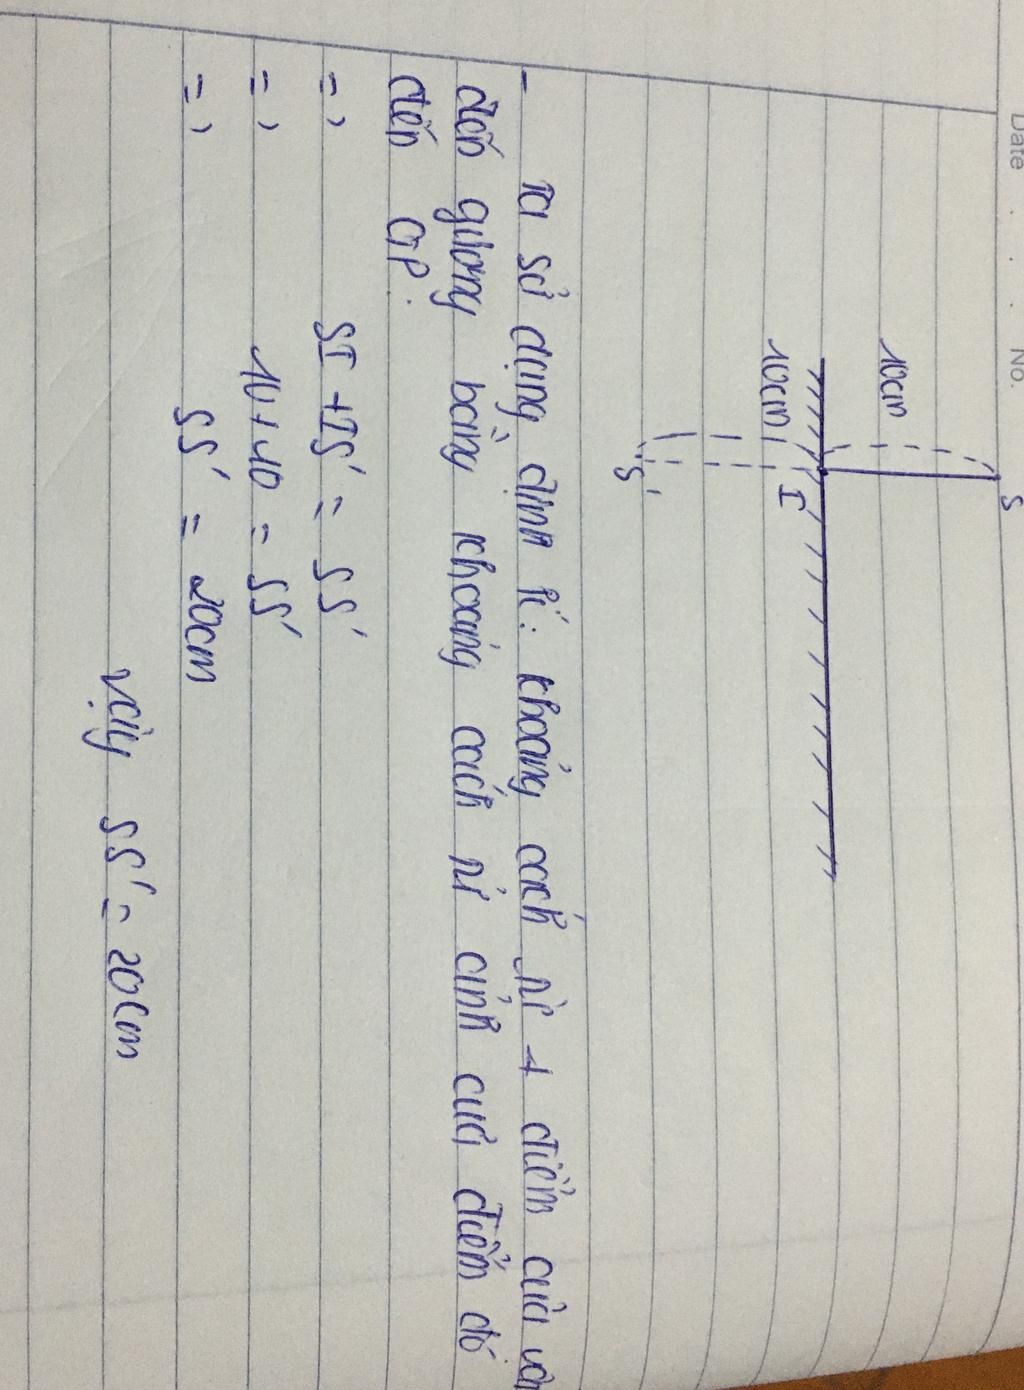 Date . . . No.
S
10cm
I
10cm
S'
- Ta sử dụng định lí: khoảng cách từ 1 điểm của vật
đến gương bằng khoảng cách từ ảnh của điểm đó
đến GP.
=> SI + IS' = SS'
=> 10 + 10 = SS'
=> SS' = 20cm
Vậy SS' = 20cm